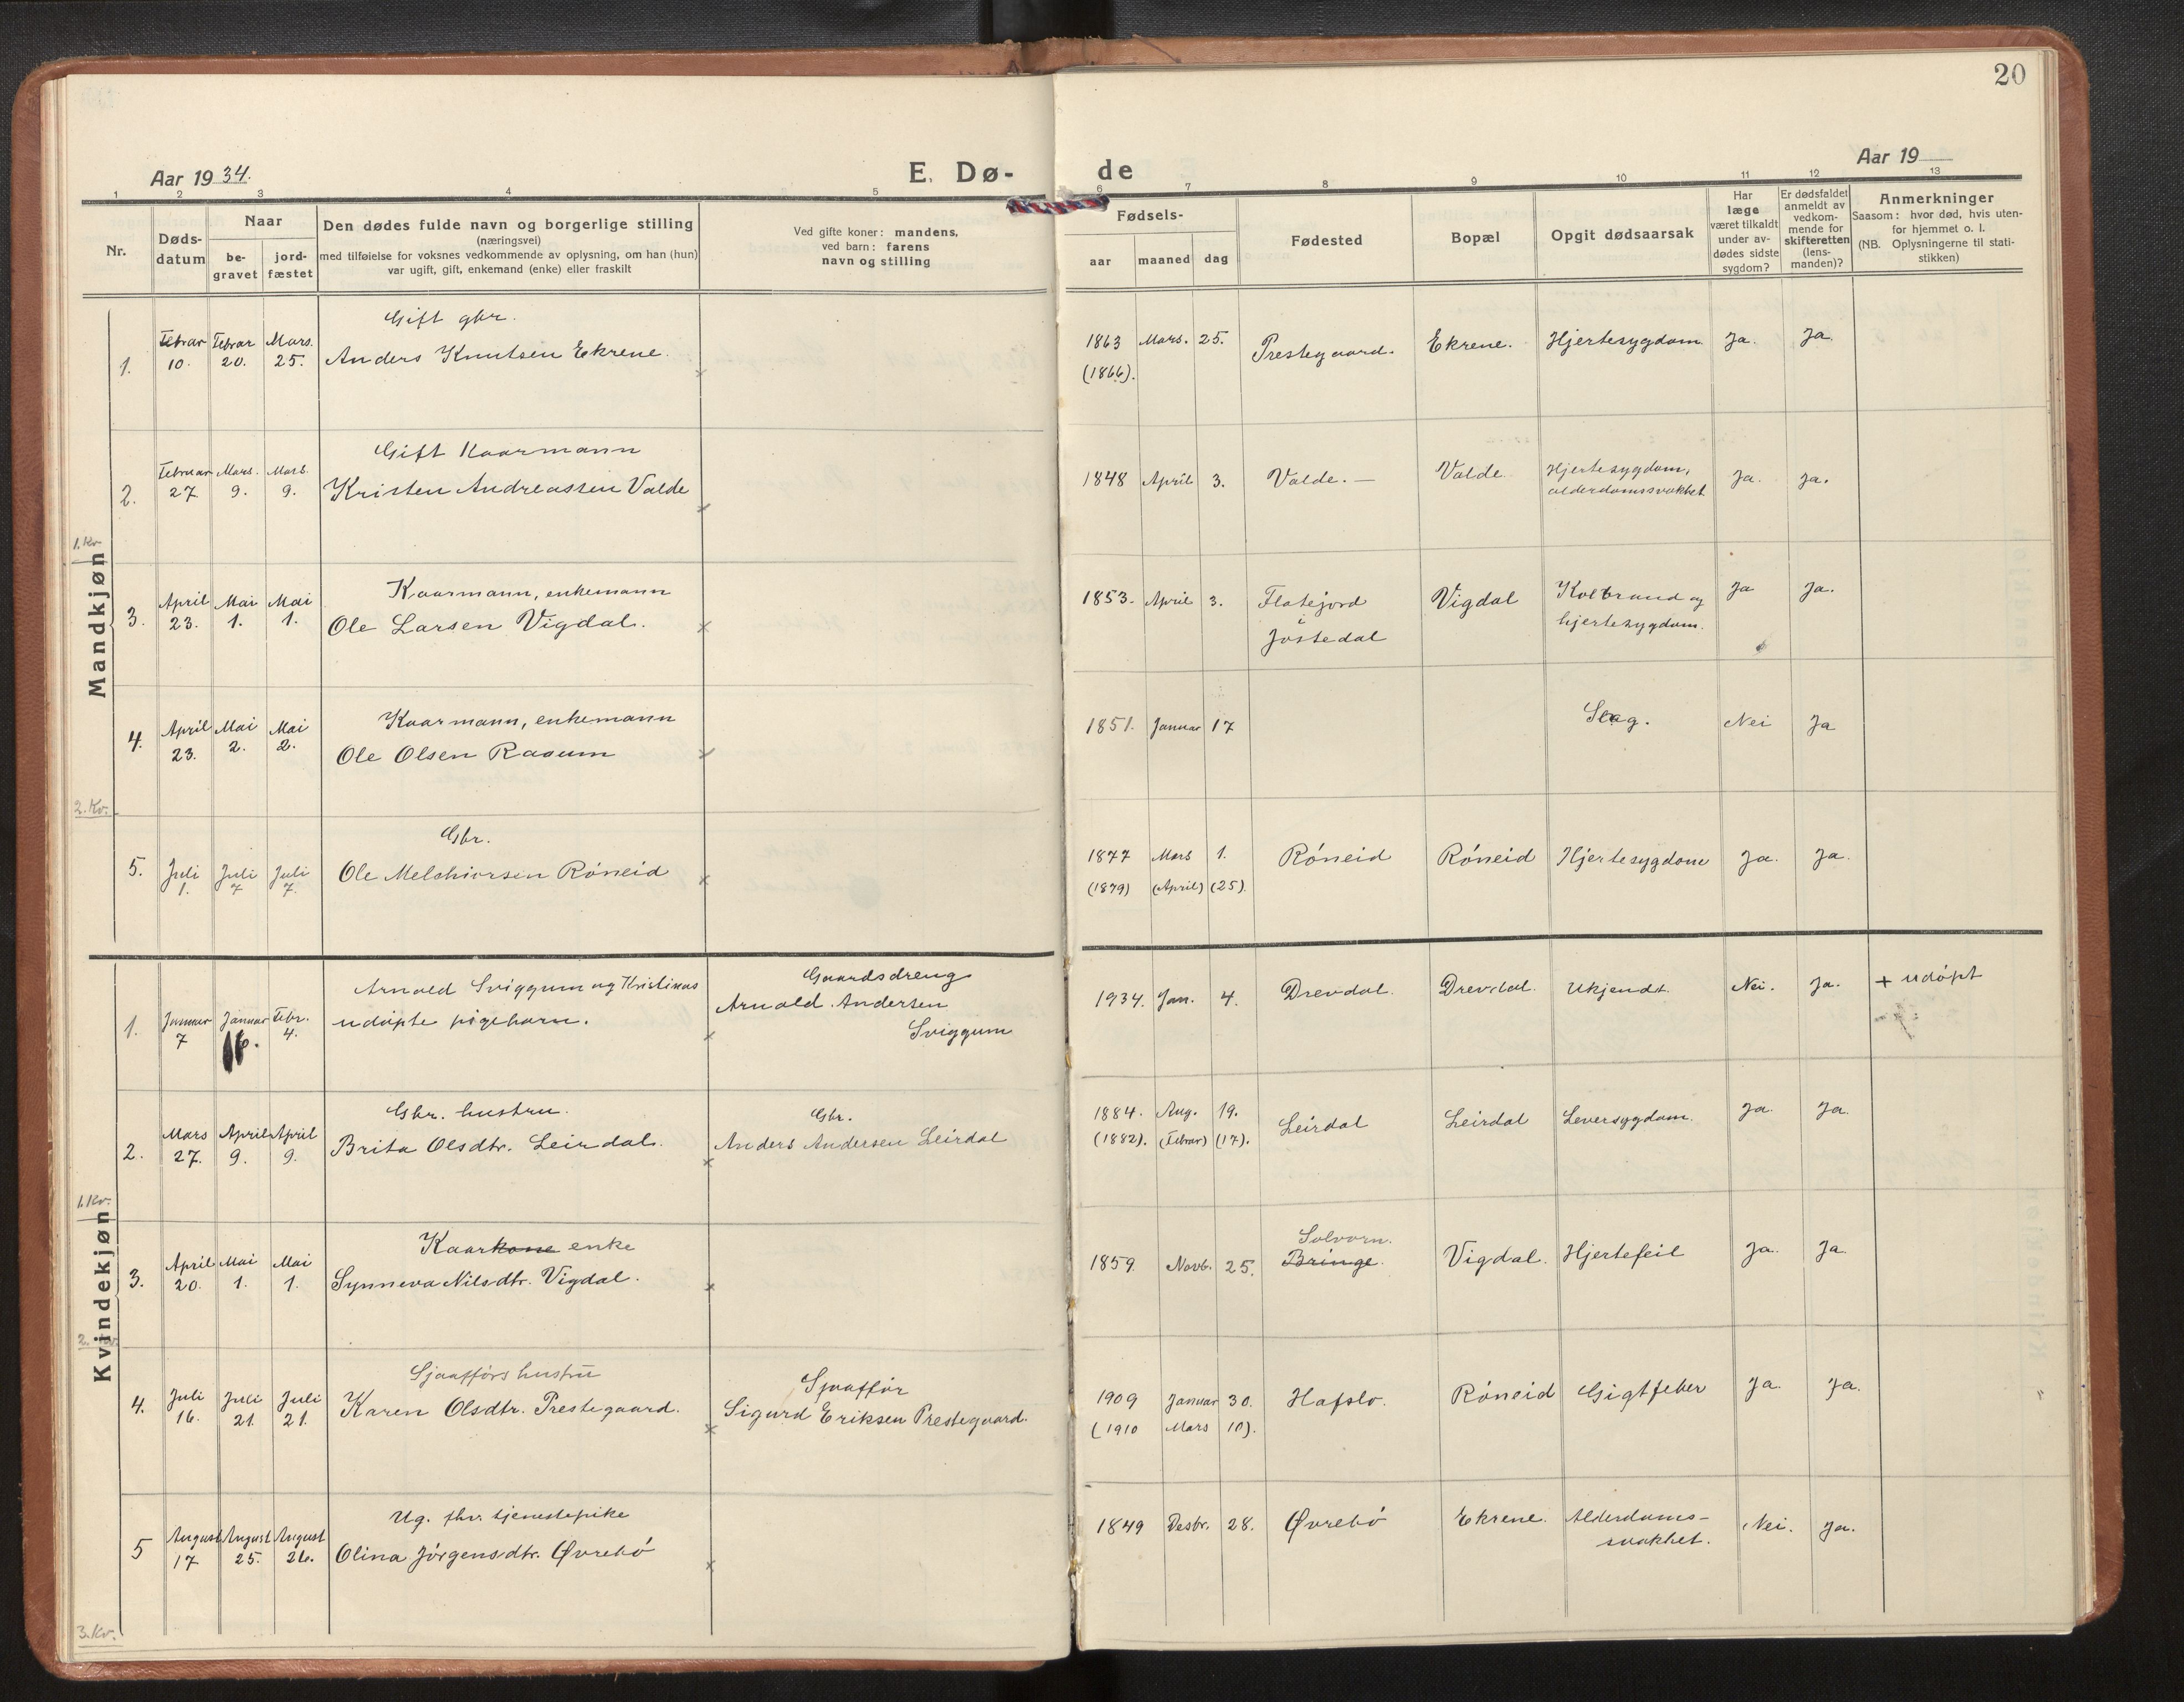 20
Aar 1934.
E. Dø-
de
Aar 19
1 2 3 4 5 6 7 8 9 10 11 12 13
Nr.
Døds-
datum
Naar
be-
gravet
jord-
fæstet
Den dødes fulde navn og borgerlige stilling
(næringsvei)
med tilføielse for voksnes vedkommende av oplysning, om han (hun)
var ugift, gift, enkemand (enke) eller fraskilt
Ved gifte koner: mandens,
ved barn: farens
navn og stilling
Fødsels-
aar maaned dag
Fødested
Bopæl
Opgit dødsaarsak
Har
læge
været tilkaldt
under av-
dødes sidste
sygdom?
Er dødsfaldet
anmeldt av
vedkom-
mende for
skifteretten
(lens-
manden)?
Anmerkninger
Saasom: hvor død, hvis uten-
for hjemmet o. l.
(NB. Oplysningerne til stati-
stikken)
Mandkjøn
Gift gbr.
1. Februar 10. Februar 20. Mars. 25. Anders Knutsen Ekrene. 1863 Mars. 25. Prestegaard. Ekrene. Hjertesygdom Ja. Ja.
(1866).
Gift Kaarmann
2. Februar 27 Mars. 9. Mars. 9. Kristen Andreassen Valde 1848 April 3. Valde. — Valde. Hjertesygdom, Ja. Ja.
alderdomssvakhet
1. Kv.
Kaarmann, enkemann
3. April 23. Mai 1. Mai 1. Ole Larsen Vigdal. 1853. April 3. Flatejord Vigdal Kolbrand og Ja Ja.
i
Jostedal
hjertesygdom.
Kaarmann, enkemann
4. April 23. Mai 2. Mai 2. Ole Olsen Raaum 1851. Januar 17 Slag. Nei Ja
2. Kv.
Gbr.
5. Juli 1. Juli 7 Juli 7. Ole Melchiorsen Røneid 1877 Mars 1. Røneid Røneid Hjertesygdom Ja. Ja.
(1879) (April) (25).
Kvindekjøn
Arnold Sviggum og Kristinas
udøpte pigebarn.
1. Januar 7 Januar 16. Febr. 4.
Gaardsdreng
Arnold Andersen
Sviggum
1934. Jan. 4. Drevdal. Drevdal. Ukjendt. Nei. Ja. + udøpt
Gbr. hustru.
2. Mars 27. April 9. April 9. Brita Olsdtr. Leirdal.
Gbr.
Anders Andersen Leirdal
1884. Aug. 19. Leirdal Leirdal Leversygdom. Ja. Ja.
(1882). (Febrar) (17).
1. Kv.
Kaarkone enke
3. April 20. Mai 1. Mai 1. Synneva Nilsdtr. Vigdal.
1859. Novb. 25. Solvorn. Bringe. Vigdal. Hjertefeil Ja. Ja.
2. Kv.
Sjaafførs hustru
4. Juli 16. Juli 21. Juli 21. Karen Olsdtr. Prestegaard.
Sjaaffør
Sigurd Eriksen Prestegaard.
1909 Januar 30. Hafslo. Røneid Gigtfeber Ja. Ja.
(1910 Mars 10).
Ug. fhv. tjenestepike
5 August 17 August 25. August 26. Olina Jørgensdtr. Øvrebø
1849 Desbr. 28. Øvrebø Ekrene. Alderdoms- Nei. Ja.
svakhet.
3. Kv.